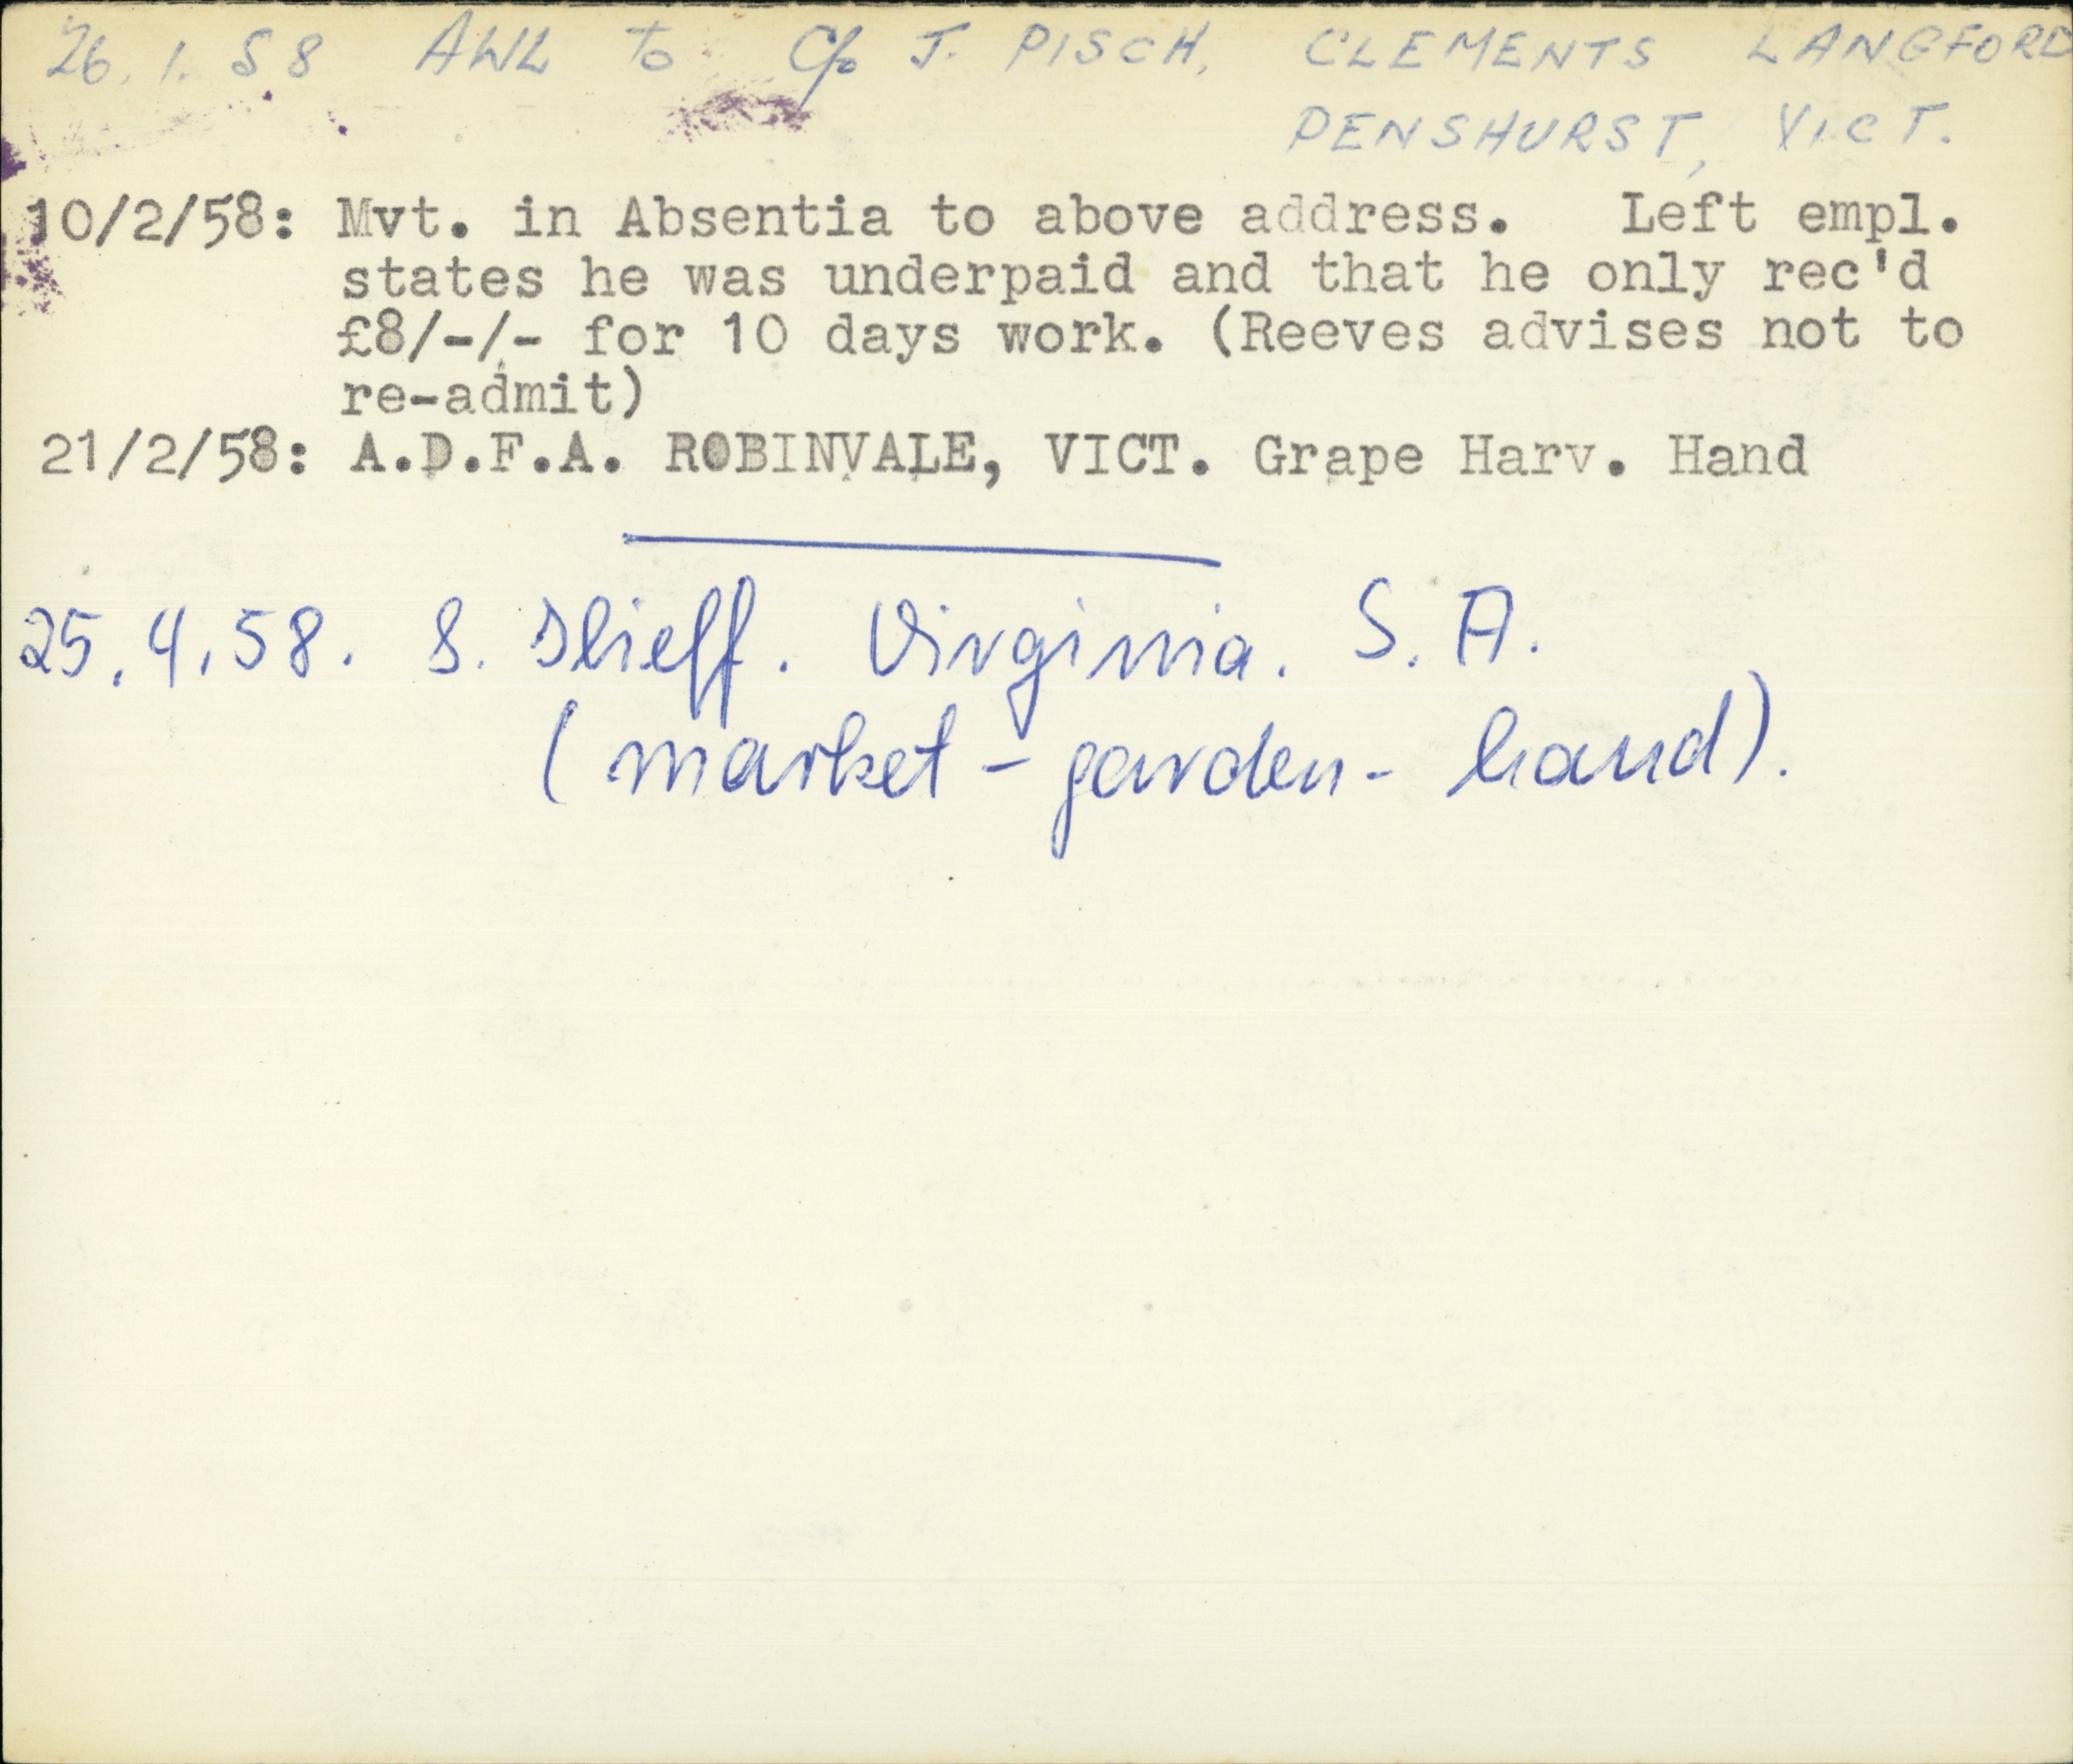 26.1.58 AWL to C/o J. PISCH, CLEMENTS LANGFORD
PENSHURST, VICT.
10/2/58: Mvt. in Absentia to above address. Left empl.
states he was underpaid and that he only rec'd
£8/-/- for 10 days work. (Reeves advises not to
re-admit)
21/2/58: A.D.F.A. ROBINVALE, VICT. Grape Harv. Hand
25.4.58. S. Ilieff. Virginia. S.A.
(market-garden-hand).